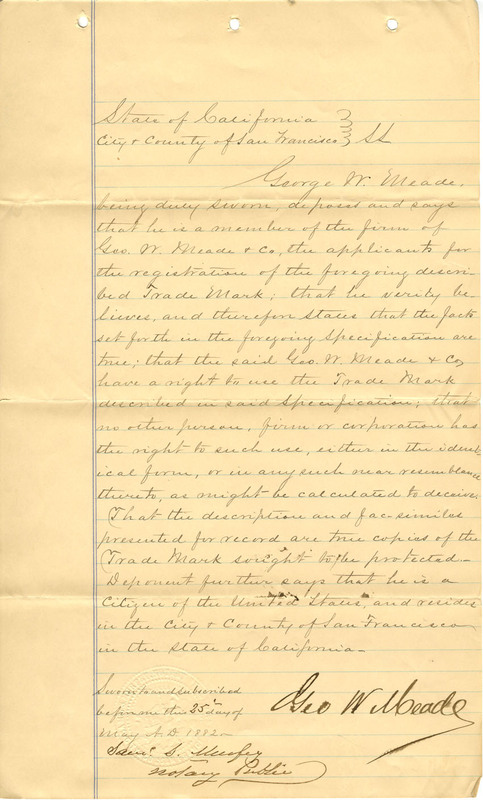 State of California
City & County of San Francisco } SS
George W. Meade,
being duly sworn, deposes and says
that he is a member of the firm of
Geo. W. Meade & Co, the applicants for
the registration of the foregoing descri-
bed Trade Mark; that he verily be-
lieves, and therefore states that the facts
set forth in the foregoing Specification are
true; that the said Geo. W. Meade & Co,
have a right to use the Trade Mark
described in said Specification; that
no other person, firm or corporation has
the right to such use, either in the ident-
ical form, or in any such near resemblance
thereto, as might be calculated to deceive.
That the description and facsimiles
presented for record are true copies of the
Trade Mark sought to be protected.-
Deponent further says that he is a
Citizen of the United States, and resides
in the City & County of San Francisco
in the State of California-
Sworn to and subscribed
before me this 25th day of
May A.D. 1882-
Geo W Meade
Saml. S.
Notary Public